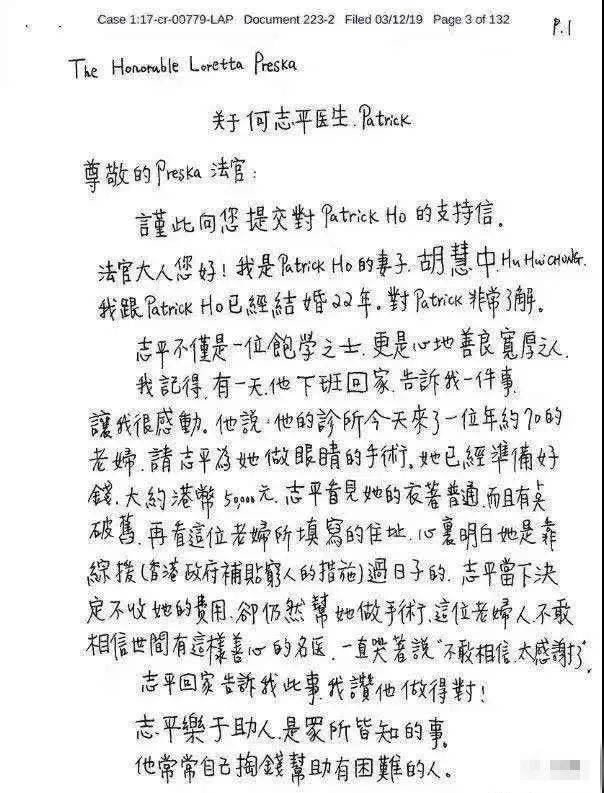 Case 1:17-cr-00779-LAP   Document 223-2   Filed 03/12/19   Page 3 of 132
P.1
The Honorable Loretta Preska
关于何志平医生.Patrick
尊敬的Preska 法官：
謹此向您提交對Patrick Ho 的支持信。
法官大人您好！我是Patrick Ho 的妻子.胡慧中.Hu Hui CHONG.
我跟Patrick Ho已經結婚22年。對Patrick 非常了解。
志平不僅是一位飽學之士.更是心地善良寬厚之人.
我記得.有一天.他下班回家.告訴我一件事.
讓我很感動。他說：他的診所今天來了一位年約70的
老婦.請志平為她做眼睛的手術。她已經準備好
錢.大約港幣50,000元.志平看見她的衣著普通.而且有點
破舊.再看這位老婦所填寫的住址.心裏明白她是靠
綜援(香港政府補貼窮人的措施)過日子的.志平當下決
定不收她的費用.卻仍然幫她做手術.這位老婦人.不敢
相信世間有這樣善心的名医.一直哭著說"不敢相信.太感謝了".
志平回家告訴我此事.我讚他做得對！
志平樂于助人.是眾所皆知的事.
他常常自己掏錢幫助有困難的人。